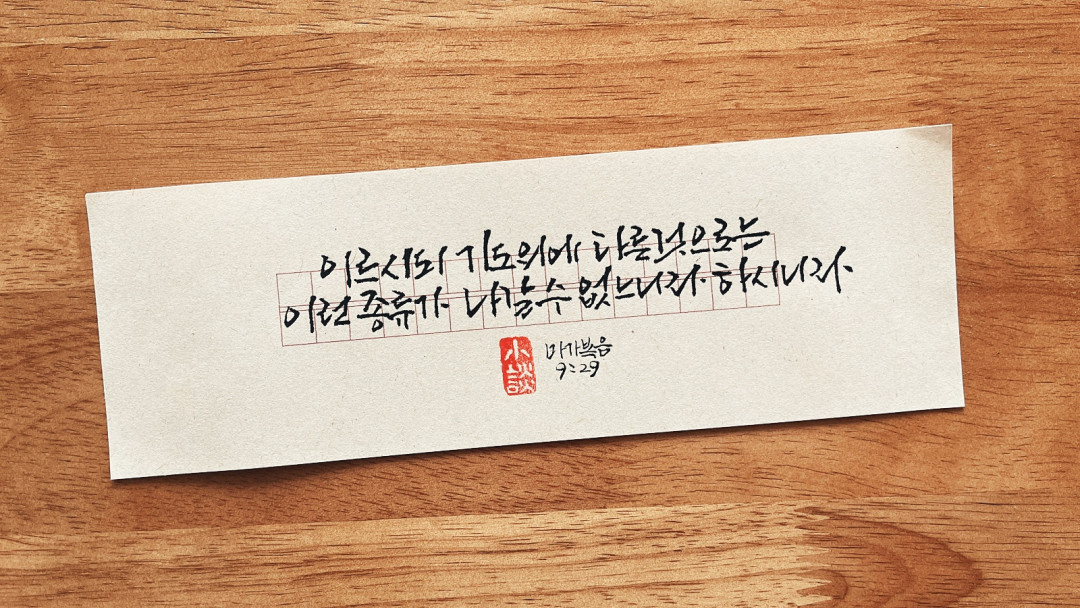 이르시되 기도외에 다른것으로는
이런 종류가 나갈수 없느니라 하시니라.
小談
마가복음
9:29